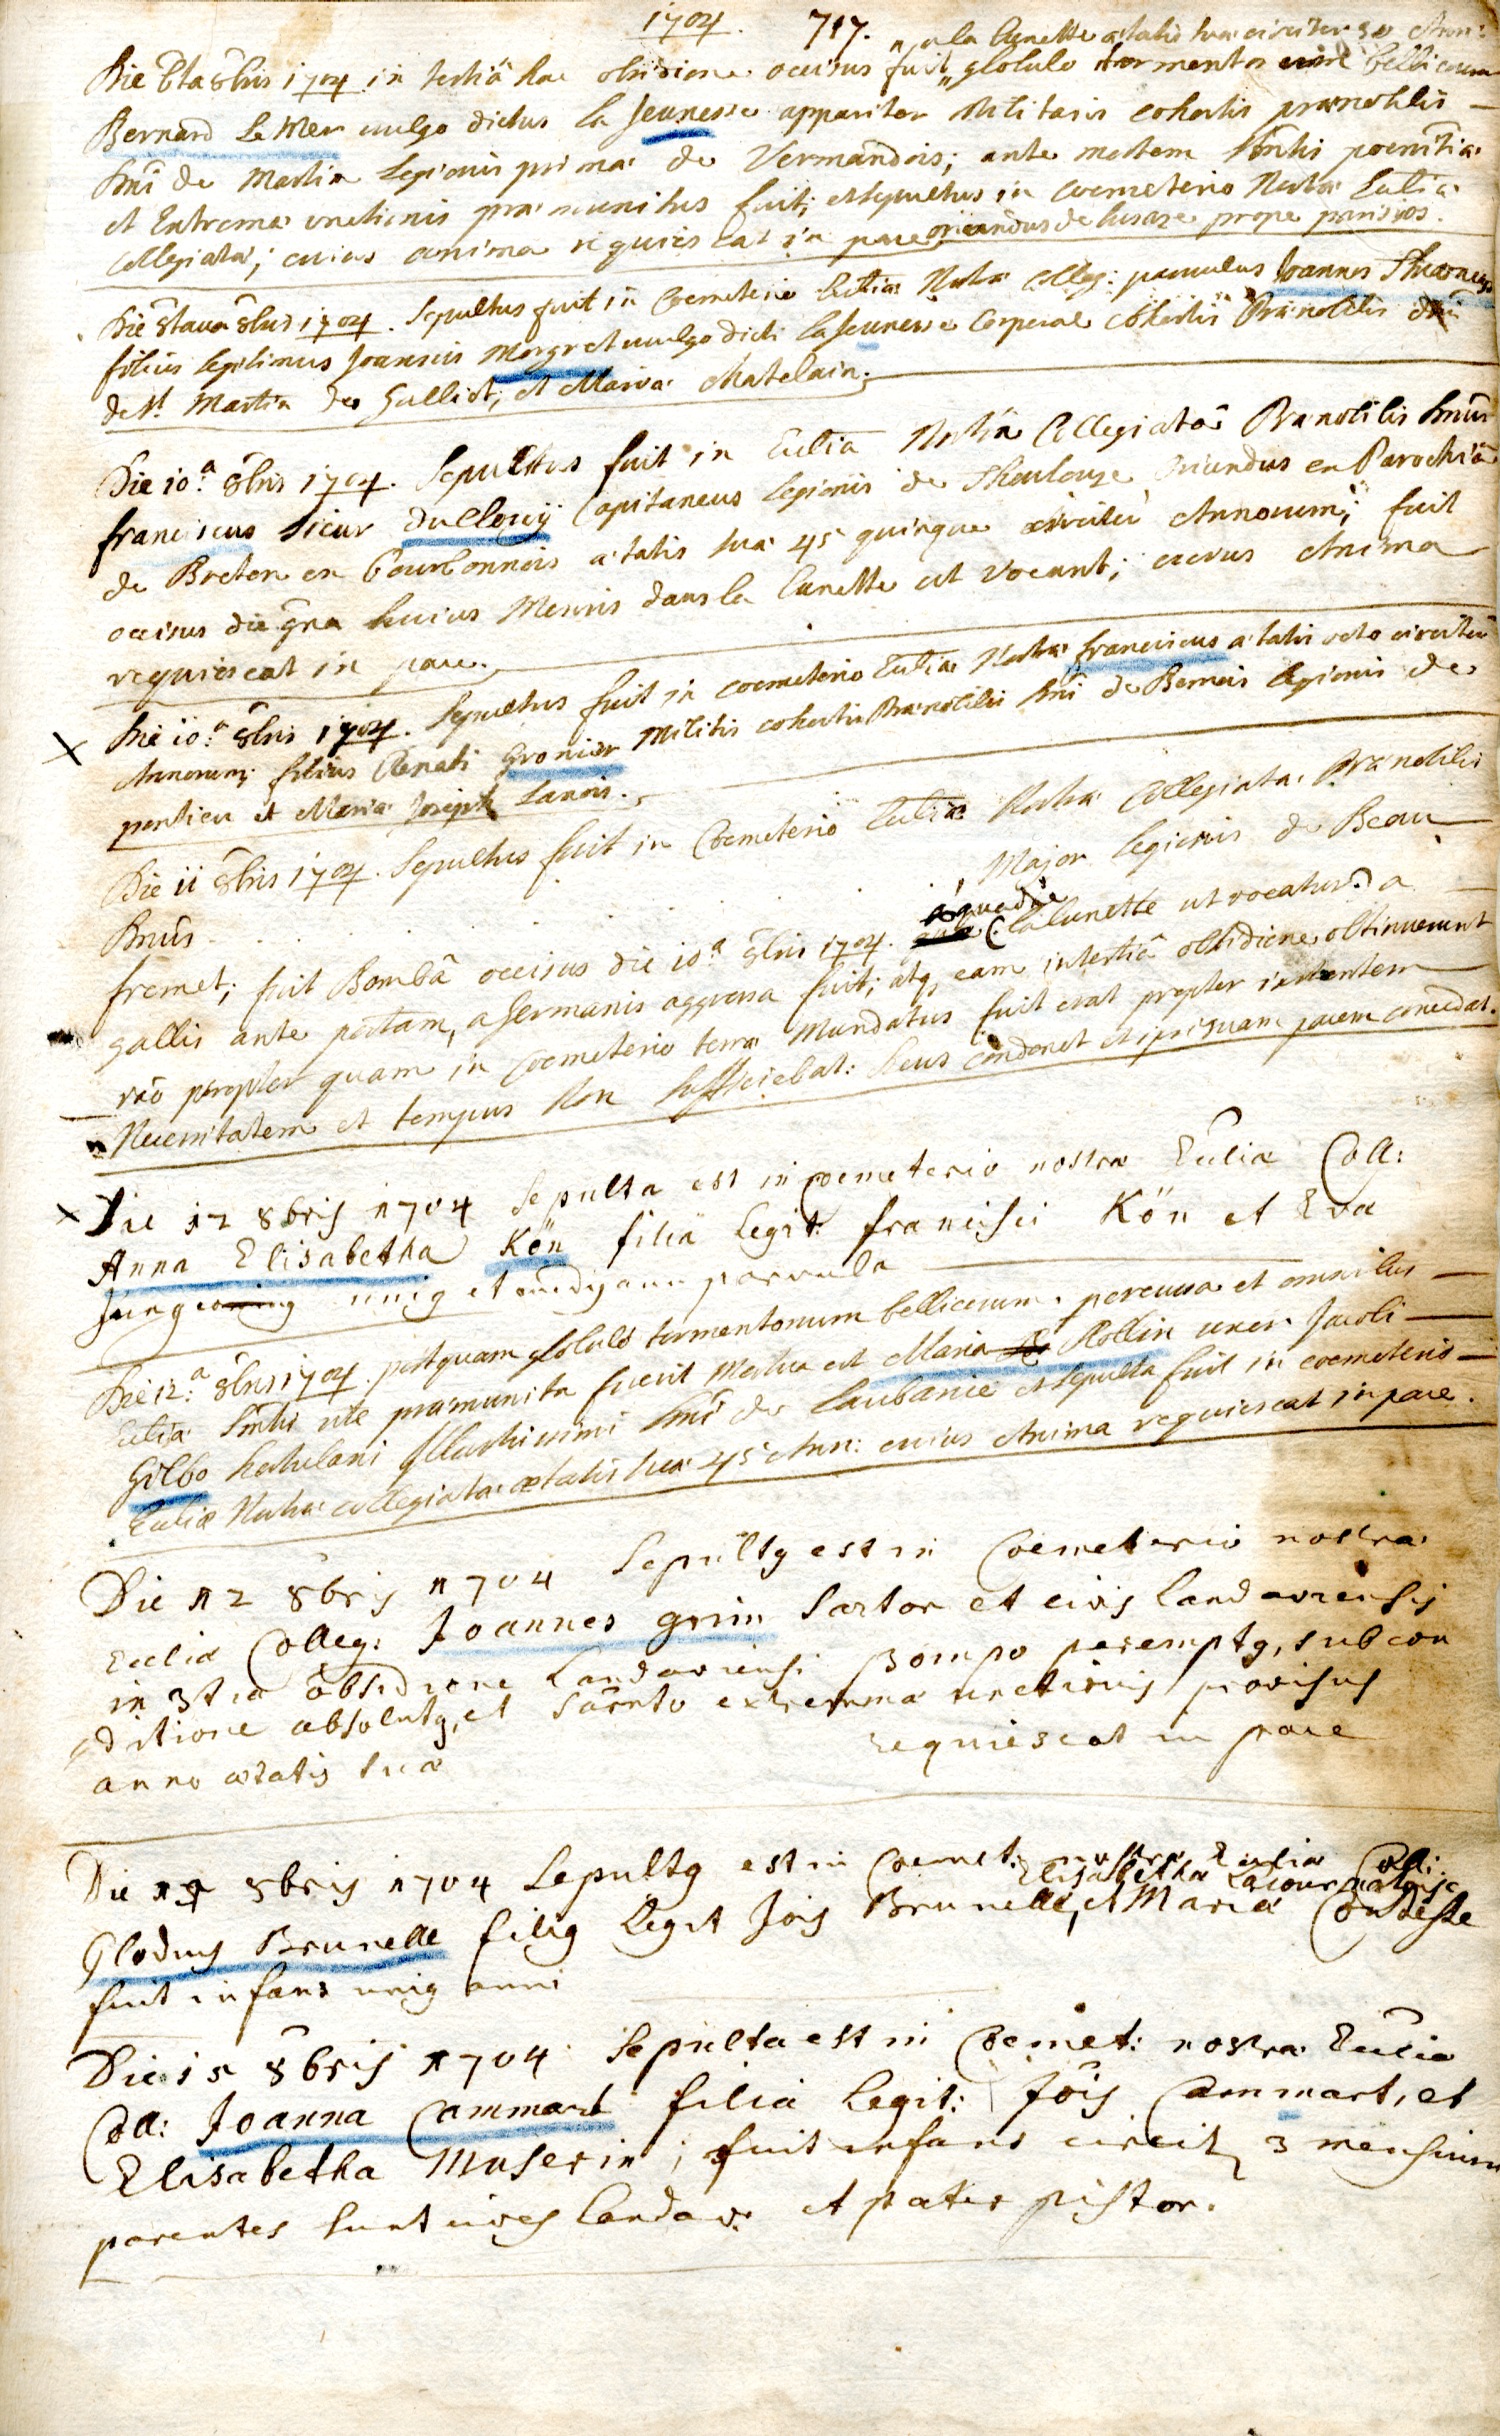 1704. 717.
„ a la lunette ætatis suæ circiter 30 Ann:
Die 8ta 8bris 1704 in tertiâ hac obsidione occisus fuit „ globulo tormentor bellicorum
Bernard Le Mer vulgo dictus la Jeunesse apparitor militaris cohortis prænobilis
Dnî de Martin Legionis primæ de Vermandois; ante mortem Smtis pœnitiæ
et Extremæ unctionis præmunitus fuit; et sepultus in cœmeterio Nostræ Ecliæ
Collegiatæ; cuius anima requiescat in pace oriundus de prope parisios.
Die 8tava 8bris 1704. Sepultus fuit in Cœmeterio Ecliæ Nostræ Colleg: parvulus Joannes
filius legitimus Joannis Morgret vulgo dicti la Jeunesse Corporal Cohortis Prænobilis Dnî
de St Martin de Galliot; et Maria Chatelain.
Die 10.a 8bris 1704. Sepultus fuit in Ecliâ Nostrâ Collegiatâ Prænobilis Dnûs
franciscus Sieur Dullouÿ Capitaneus Legionis de Thoulouze Oriundus en Parochiâ
de Breton en Bourbonnois ætatis suæ 45 quinque circiter Annorum; fuit
occisus die 9na huius Mensis dans la lunette ut vocant; cuius Anima
requiescat in pace.
Die 10.a 8bris 1704. Sepultus fuit in cœmeterio Ecliæ Nostræ franciscus ætatis octo circiter
Annorum; filius Renati Gronier Militis cohortis Prænobilis Dnî de Bemeis legionis de
pontieu et Maria Joseph Lanois.
Die 11 8bris 1704. Sepultus fuit in Cœmeterio Ecliæ Nostræ Collegiatæ Prænobilis
Dnûs . . . . Major legionis de Beau
fremet; fuit Bombâ occisus die 10.a 8bris 1704. a quâ die (la lunette ut vocatur) a
gallis ante portam, a Germanis aggressa fuit; atq, eam in tertiâ obsidione obtinuerunt
rão propter quam in Cœmeterio terræ Mandatus fuit erat propter
Necessitatem et tempus Non sufficiebat: Deus condonet et ipsi suam pacem concedat.
Die 12 8bris 1704 Sepulta est in cœmeterio nostræ Ecliæ Coll:
Anna Elisabetha Kön filia Legit: francisci Kön et Eva
Jung unig et anni parvula
Die 12.a 8bris 1704. postquam globulo tormentorum bellicorum percussa et omnibus
Ecliæ Smtis rite præmunita fuerit Mortua est Maria Rollin uxor Jacobi
Gilbo hortulani Illustrissimi Dnî de Laubanie et sepulta fuit in cœmeterio
Ecliæ Nostræ collegiatæ ætatis suæ 45 Ann: cuius Anima requiescat in pace.
Die 12 8bris 1704 Sepultg est in Cœmeterio nostræ
Ecclia Colleg: Joannes grim Sartor et civis Landaviensis
in 3tia obsidione Landaviensi Bombo peremptg, sub con
ditione absolutg, et Sacrnto extrema unctionis provisus
anno ætatis suæ requiescat in pace
Die 8bris 1704 Sepultg est in Cœmet: nostræ Ecclia Coll:
Elisabetha Lacour
Glodius Brunelle filig Legit Jois Brunelle, et Maria
fuit infans unig anni
Die 15 8bris 1704 Sepulta est in Cœmet: nostræ Ecclia
Coll: Joanna Cammart filia Legit: Jôis Cammart, et
Elisabetha Muserin; fuit infans circit 3 mensium
parentes sunt cives Landav: et pater pistor.